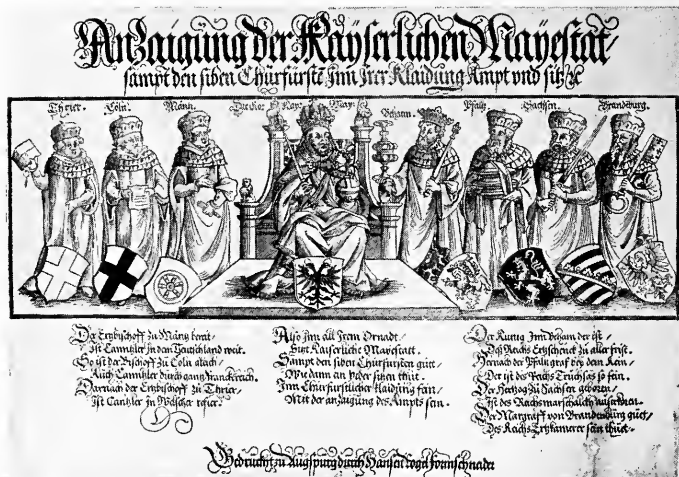 Anzaigung der Kayserlichen Mayestat/
sampt den siben Churfürstē Inn Irer Klaidung Ampt vnd sitz ꝛc
Thrier. Cöln. Männ. Die Kay. May. Beham. Pfaltz. Sachsen. Brandēburg.
Der Ertzbischoff zu Mäntz bereit/
Ist Cantzler in dem Teutschland weit.
So ist der Bischoff zu Cöln auch/
Auch Cantzler durch gantz Franckreich.
Darnach der Ertzbischoff zu Thrier/
Ist Cantzler in Welscher refier.
Also inn all Irem Ornadt/
Sitzt Kaiserliche Mayestatt.
Sampt den siben Churfürsten güet/
Wie dann an yeder sitzen thüt.
Inn Churfürstlicher klaidung fein/
Mit der anzaigung des Ampts sein.
Der Künig Inn Beham der ist/
Deß Reichs Ertzschenck zu aller frist.
Hernach der Pfaltzgraf bey dem Rein/
Der ist des Reichs Truchsäs so fein.
Der Hertzog zu Sachsen geboren/
Ist des Reichs marschalck auserkoren.
Der Margraff von Brandenburg güet/
Des Reichs Ertzkamerer sein thüet.
Gedruckt zu Augspurg durch Hansen Vogel Formschneider